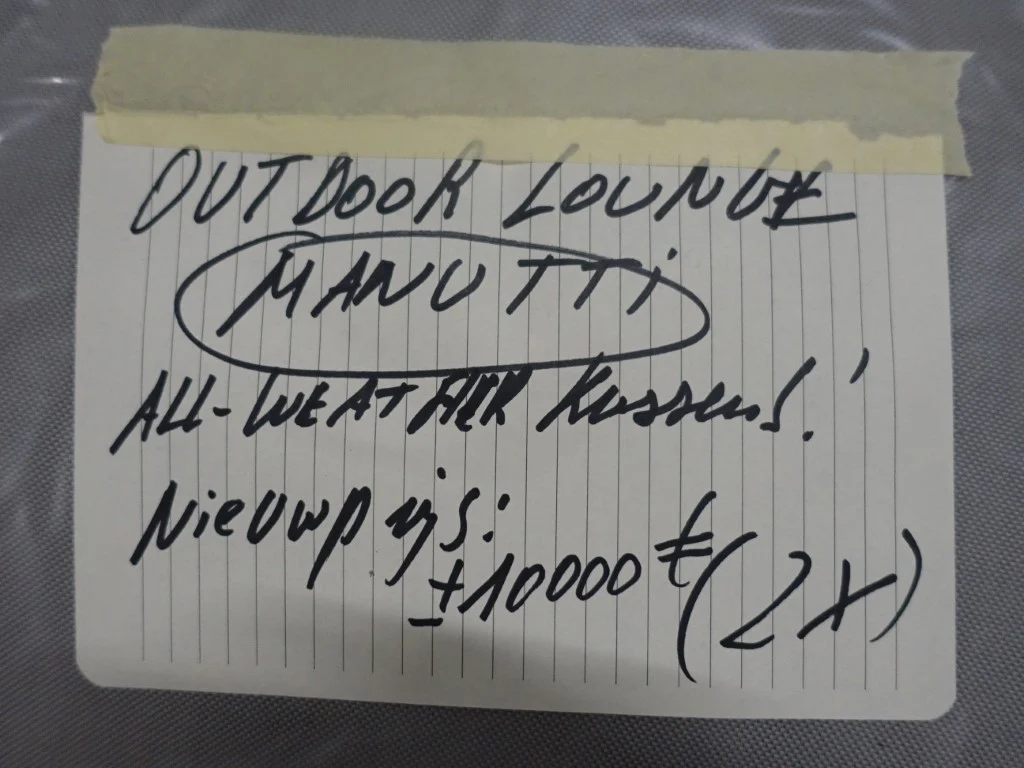 OUTDOOR LOUNGE
MANUTTI
ALL-WEATHER Kussens!
Nieuwprijs:
±10000 € (2X)